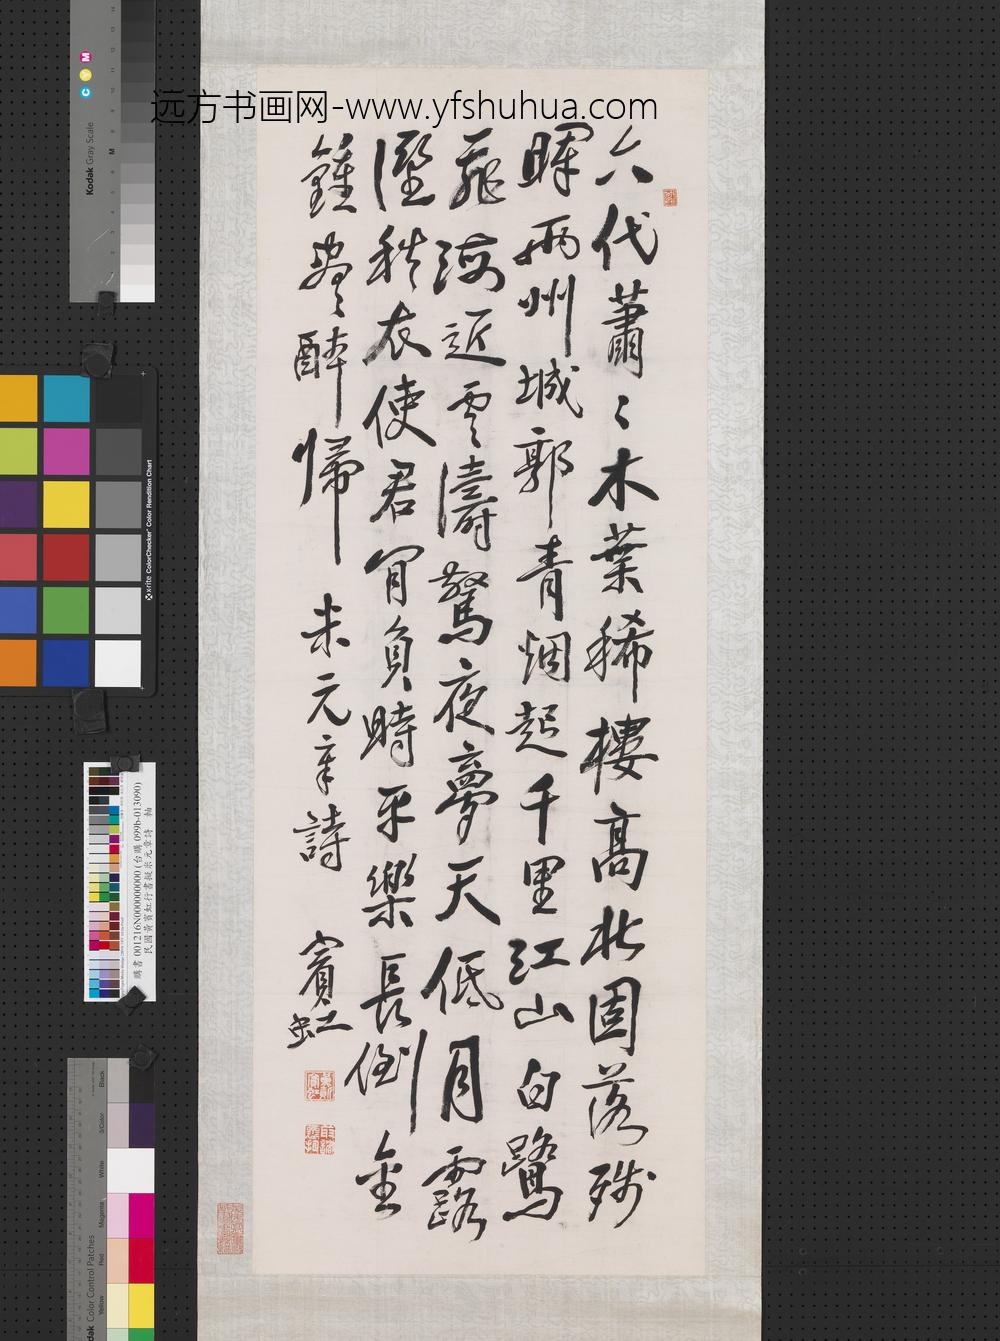 远方书画网-www.yfshuhua.com
六代蕭〻木葉稀樓高北固落殘
暉兩州城郭青烟起千里江山白鷺
飛海近雲濤驚夜夢天低月露
溼秋衣使君肯負時平樂長倒金
鍾盡醉歸 米元章詩 賓虹
C Y M
Kodak Gray Scale
M
x-rite ColorChecker Color Rendition Chart
購書 001216N000000000 (台購.099b-013090)
民國黃賓虹行書擬米元章詩 軸
Kodak Color Control Patches
Black
3/Color
White
Magenta
Red
Yellow